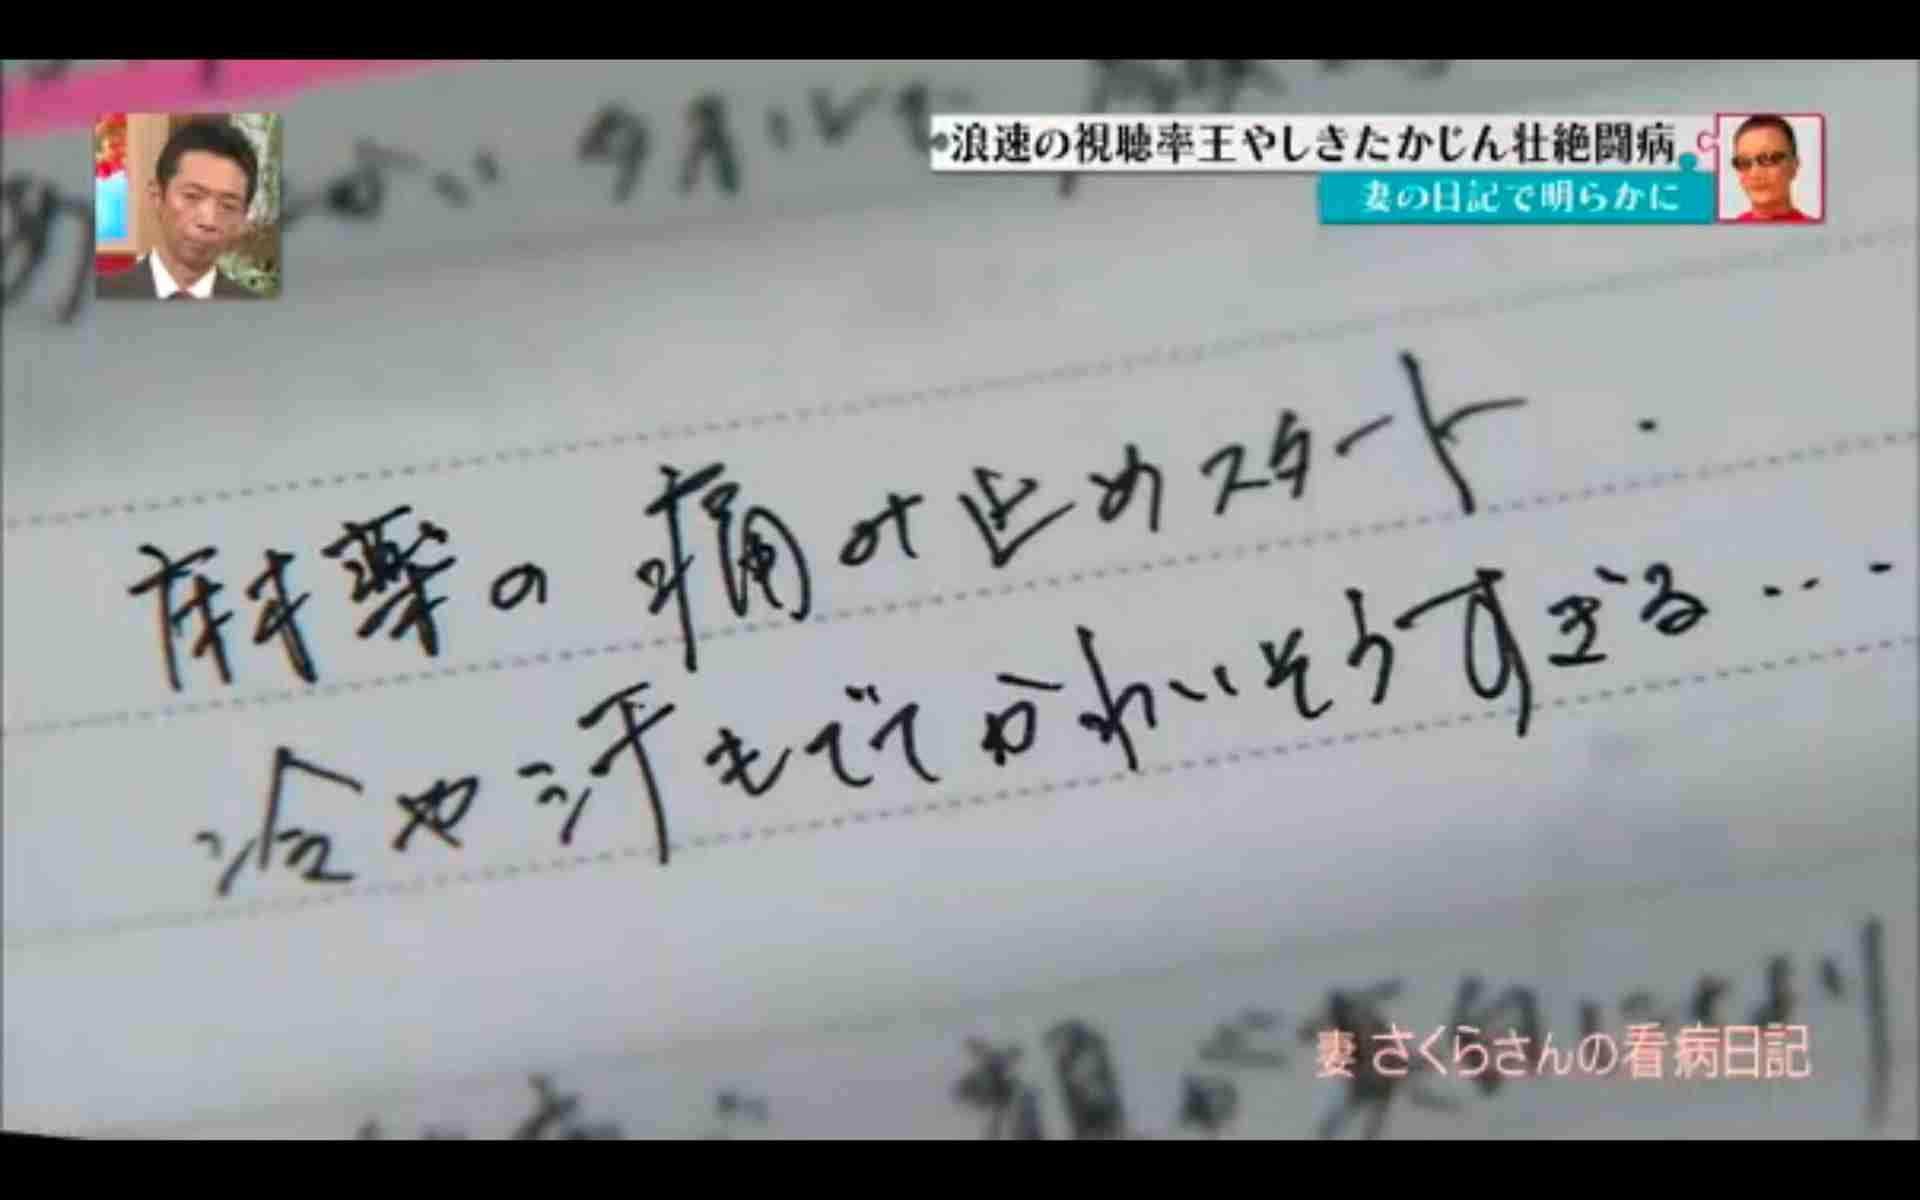 浪速の視聴率王やしきたかじん壮絶闘病
妻の日記で明らかに
タオルで
麻薬の痛み止めスタート.
冷や汗もでてかわいそうすぎる・・・
顔が真白になり
妻 さくらさんの看病日記